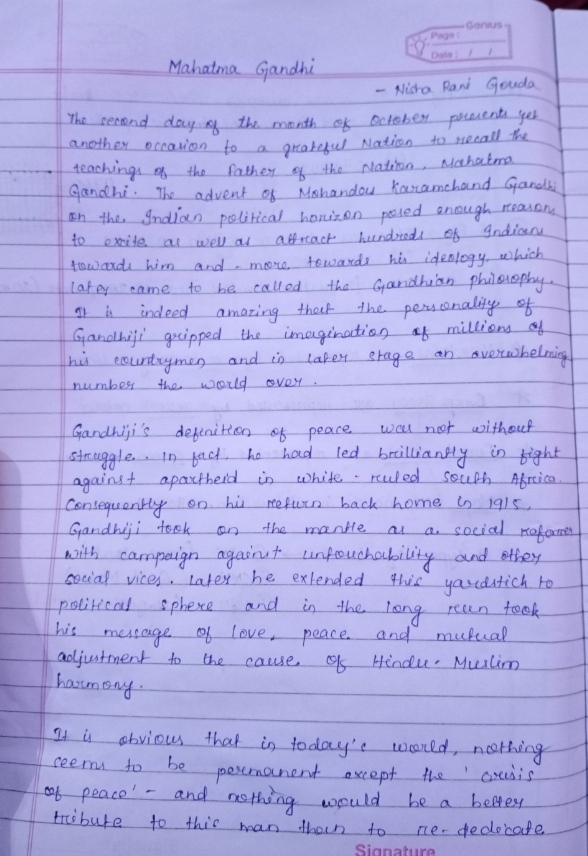 Genius
Page :
Date : / /
Mahatma Gandhi
- Nisha Rani Gouda
The second day of the month of October presents yet
another occasion to a grateful Nation to recall the
teachings of the Father of the Nation, Mahatma
Gandhi. The advent of Mohandas Karamchand Gandhi
on the Indian political horizon posed enough reasons
to excite as well as attract hundreds of Indians
towards him and - more towards his ideology, which
later came to be called the Gandhian philosophy.
It is indeed amazing that the personality of
Gandhiji gripped the imagination of millions of
his countrymen and in later stage an overwhelming
number the world over.
Gandhiji's definition of peace was not without
struggle. In fact, he had led brilliantly in fight
against apartheid in white-ruled South Africa.
Consequently on his return back home in 1915,
Gandhiji took on the mantle as a social reformer
with campaign against untouchability and other
social vices. Later he extended this yardstich to
political sphere and in the long reun took
his message of love, peace and mutual
adjustment to the cause of Hindu-Muslim
harmony.
It is obvious that in today's world, nothing
seems to be permanent except the 'crisis
of peace' - and nothing would be a better
tribute to this man than to re-dedicate
Signature